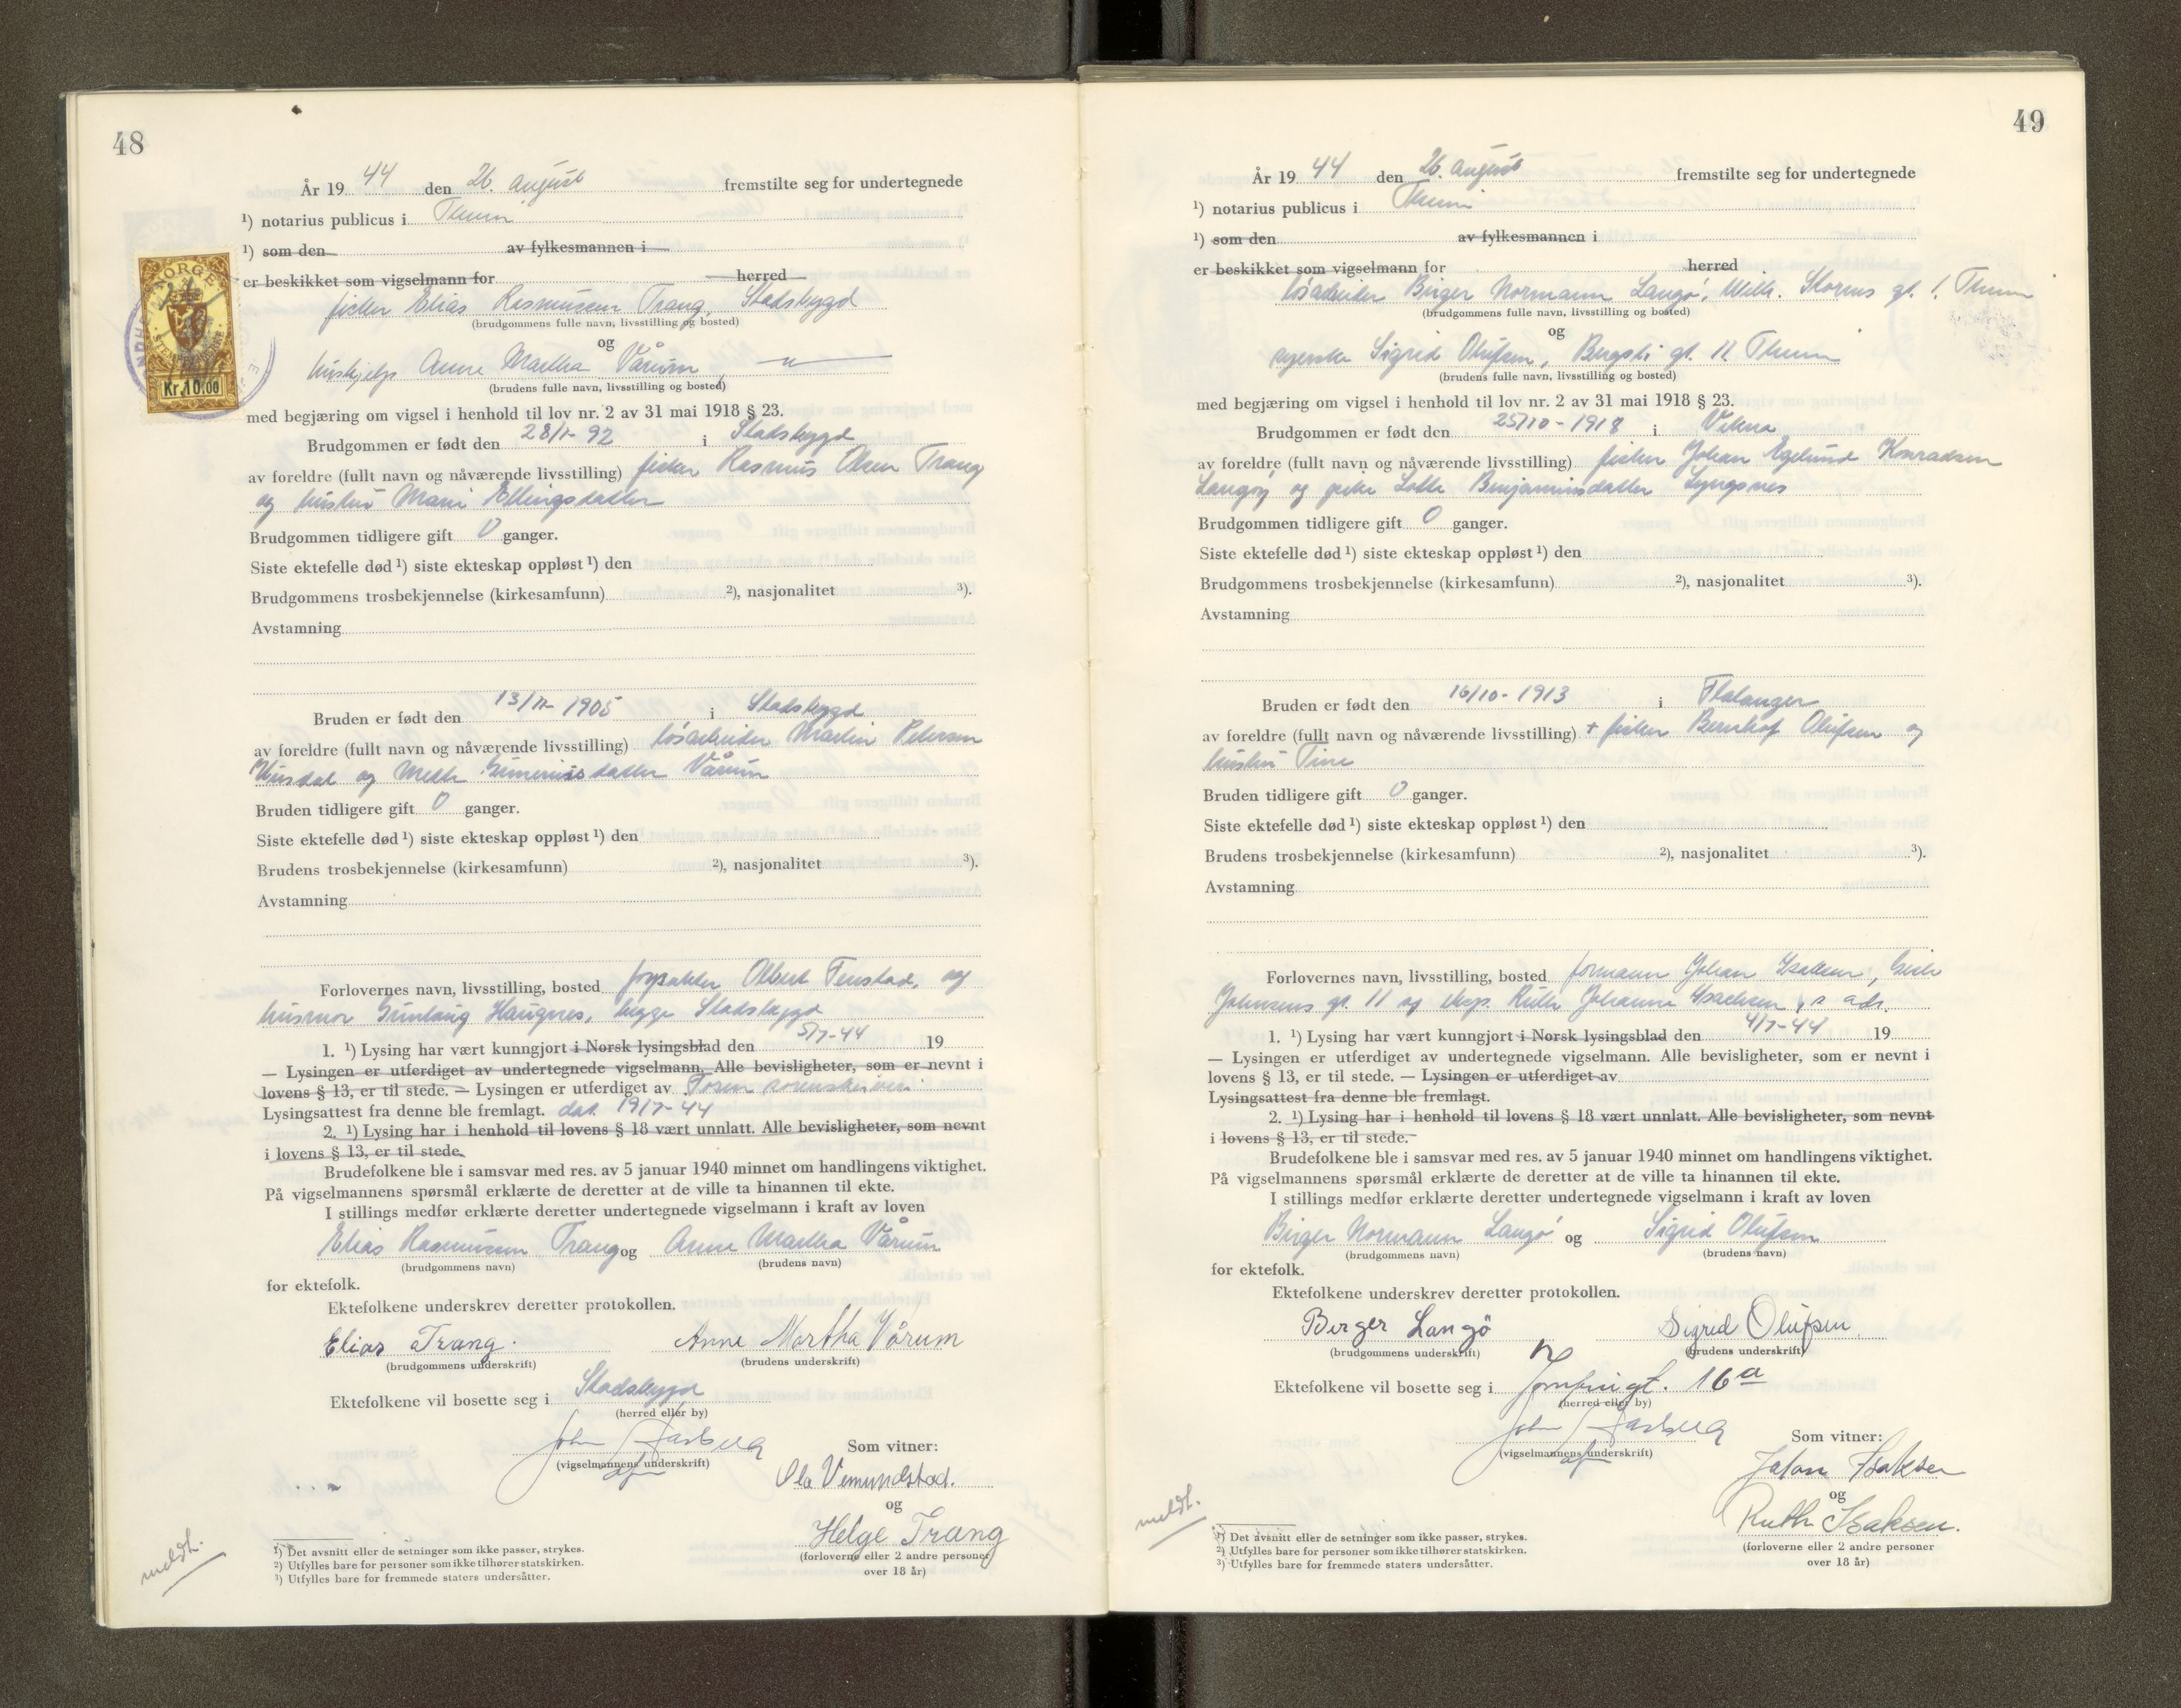 48
År 19 44 den 26. august fremstilte seg for undertegnede
¹) notarius publicus i Thum
¹) som den av fylkesmannen i
er beskikket som vigselmann for herred
NORGE
Kr.10.00
fisker Elias Rasmussen Trang, Stadsbygd
(brudgommens fulle navn, livsstilling og bosted)
og
hushjelp Anne Martha Vårum, — " —
(brudens fulle navn, livsstilling og bosted)
med begjæring om vigsel i henhold til lov nr. 2 av 31 mai 1918 § 23.
Brudgommen er født den 28/1- 92 i Stadsbygd
av foreldre (fullt navn og nåværende livsstilling) fisker Rasmus Olsen Trang
og hustru Marie Ellingsdatter
Brudgommen tidligere gift 0 ganger.
Siste ektefelle død ¹) siste ekteskap oppløst ¹) den
Brudgommens trosbekjennelse (kirkesamfunn) ²), nasjonalitet ³).
Avstamning
Bruden er født den 13/11- 1905 i Stadsbygd
av foreldre (fullt navn og nåværende livsstilling) løsarbeider Martin Petersen
og Meth datter Vårum
Bruden tidligere gift 0 ganger.
Siste ektefelle død ¹) siste ekteskap oppløst ¹) den
Brudens trosbekjennelse (kirkesamfunn) ²), nasjonalitet ³).
Avstamning
Forlovernes navn, livsstilling, bosted Albert Tenstad, og
husmor Gunlaug Haugnes, begge Stadsbygd
1. ¹) Lysing har vært kunngjort i Norsk lysingsblad den 5/7-44 19
— Lysingen er utferdiget av undertegnede vigselmann. Alle bevisligheter, som er nevnt i
lovens § 13, er til stede. — Lysingen er utferdiget av Fosen sorenskriveri
Lysingsattest fra denne ble fremlagt. dat. 19/7-44
2. ¹) Lysing har i henhold til lovens § 18 vært unnlatt. Alle bevisligheter, som nevnt
i lovens § 13, er til stede.
Brudefolkene ble i samsvar med res. av 5 januar 1940 minnet om handlingens viktighet.
På vigselmannens spørsmål erklærte de deretter at de ville ta hinannen til ekte.
I stillings medfør erklærte deretter undertegnede vigselmann i kraft av loven
Elias Rasmussen Trang og Anne Martha Vårum
(brudgommens navn) (brudens navn)
for ektefolk.
Ektefolkene underskrev deretter protokollen.
Elias Trang. Anne Martha Vårum
(brudgommens underskrift) (brudens underskrift)
Ektefolkene vil bosette seg i Stadsbygd
(herred eller by)
John Aasberg
(vigselmannens underskrift)
Som vitner:
Ola Vemundstad.
og
Helge Trang
(forloverne eller 2 andre personer
over 18 år)
meldt.
¹) Det avsnitt eller de setninger som ikke passer, strykes.
²) Utfylles bare for personer som ikke tilhører statskirken.
³) Utfylles bare for fremmede staters undersåtter.
49
År 19 44 den 26. august fremstilte seg for undertegnede
¹) notarius publicus i Thum
¹) som den av fylkesmannen i
er beskikket som vigselmann for herred
løsarbeider Birger Normann Langø, Wilh. Storms gt. 1. Thum
(brudgommens fulle navn, livsstilling og bosted)
og
syerske Sigrid Olufsen, Bergsli gt. 11 Thum
(brudens fulle navn, livsstilling og bosted)
med begjæring om vigsel i henhold til lov nr. 2 av 31 mai 1918 § 23.
Brudgommen er født den 25/10 - 1918 i Vikna
av foreldre (fullt navn og nåværende livsstilling) fisker Johan Egelund Konradsen
Langøy og pike Lotte Benjaminsdatter Lyngsnes
Brudgommen tidligere gift 0 ganger.
Siste ektefelle død ¹) siste ekteskap oppløst ¹) den
Brudgommens trosbekjennelse (kirkesamfunn) ²), nasjonalitet ³).
Avstamning
Bruden er født den 16/10 - 1913 i Flatanger
av foreldre (fullt navn og nåværende livsstilling) + fisker Bernhof Olufsen og
hustru Tine
Bruden tidligere gift 0 ganger.
Siste ektefelle død ¹) siste ekteskap oppløst ¹) den
Brudens trosbekjennelse (kirkesamfunn) ²), nasjonalitet ³).
Avstamning
Forlovernes navn, livsstilling, bosted formann Johan Isaksen,
Johnsens gt. 11 og eksp. Ruth Johanne Isachsen, s. adr.
1. ¹) Lysing har vært kunngjort i Norsk lysingsblad den 4/7-44 19
— Lysingen er utferdiget av undertegnede vigselmann. Alle bevisligheter, som er nevnt i
lovens § 13, er til stede. — Lysingen er utferdiget av
Lysingsattest fra denne ble fremlagt.
2. ¹) Lysing har i henhold til lovens § 18 vært unnlatt. Alle bevisligheter, som nevnt
i lovens § 13, er til stede.
Brudefolkene ble i samsvar med res. av 5 januar 1940 minnet om handlingens viktighet.
På vigselmannens spørsmål erklærte de deretter at de ville ta hinannen til ekte.
I stillings medfør erklærte deretter undertegnede vigselmann i kraft av loven
Birger Normann Langø og Sigrid Olufsen
(brudgommens navn) (brudens navn)
for ektefolk.
Ektefolkene underskrev deretter protokollen.
Birger Langø Sigrid Olufsen
(brudgommens underskrift) (brudens underskrift)
Ektefolkene vil bosette seg i Jomfrugt. 16a
(herred eller by)
John Aasberg
(vigselmannens underskrift)
Som vitner:
Johan Isaksen
og
Ruth Isaksen.
(forloverne eller 2 andre personer
over 18 år)
meldt.
¹) Det avsnitt eller de setninger som ikke passer, strykes.
²) Utfylles bare for personer som ikke tilhører statskirken.
³) Utfylles bare for fremmede staters undersåtter.